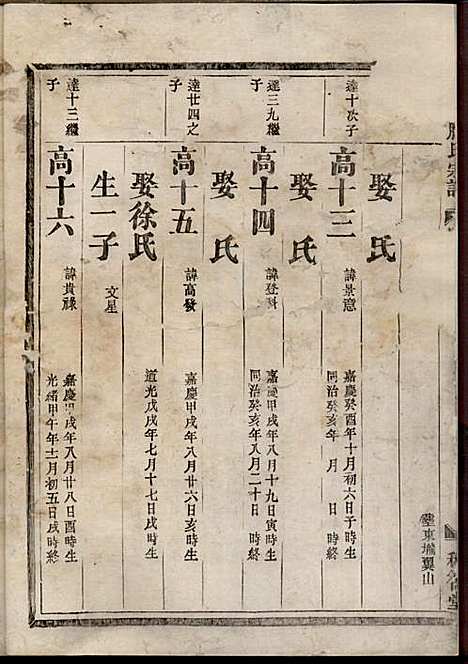 氏宗譜
娶 氏
塋東壠翼山
達十次子
高十三
諱景意
嘉慶癸酉年十月初六日子時生
同治癸亥年 月 日 時終
娶 氏
達三九繼子
高十四
諱登科
嘉慶甲戌年八月十九日寅時生
同治癸亥年八月二十日 時終
娶 氏
達廿四之子
高十五
諱高發
嘉慶甲戌年八月廿六日亥時生
娶徐氏
道光戊戌年七月十七日戌時生
生一子
文星
達十三繼子
高十六
諱貴祿
嘉慶 戌年八月廿八日酉時生
光緒甲午年十一月初五日戌時終